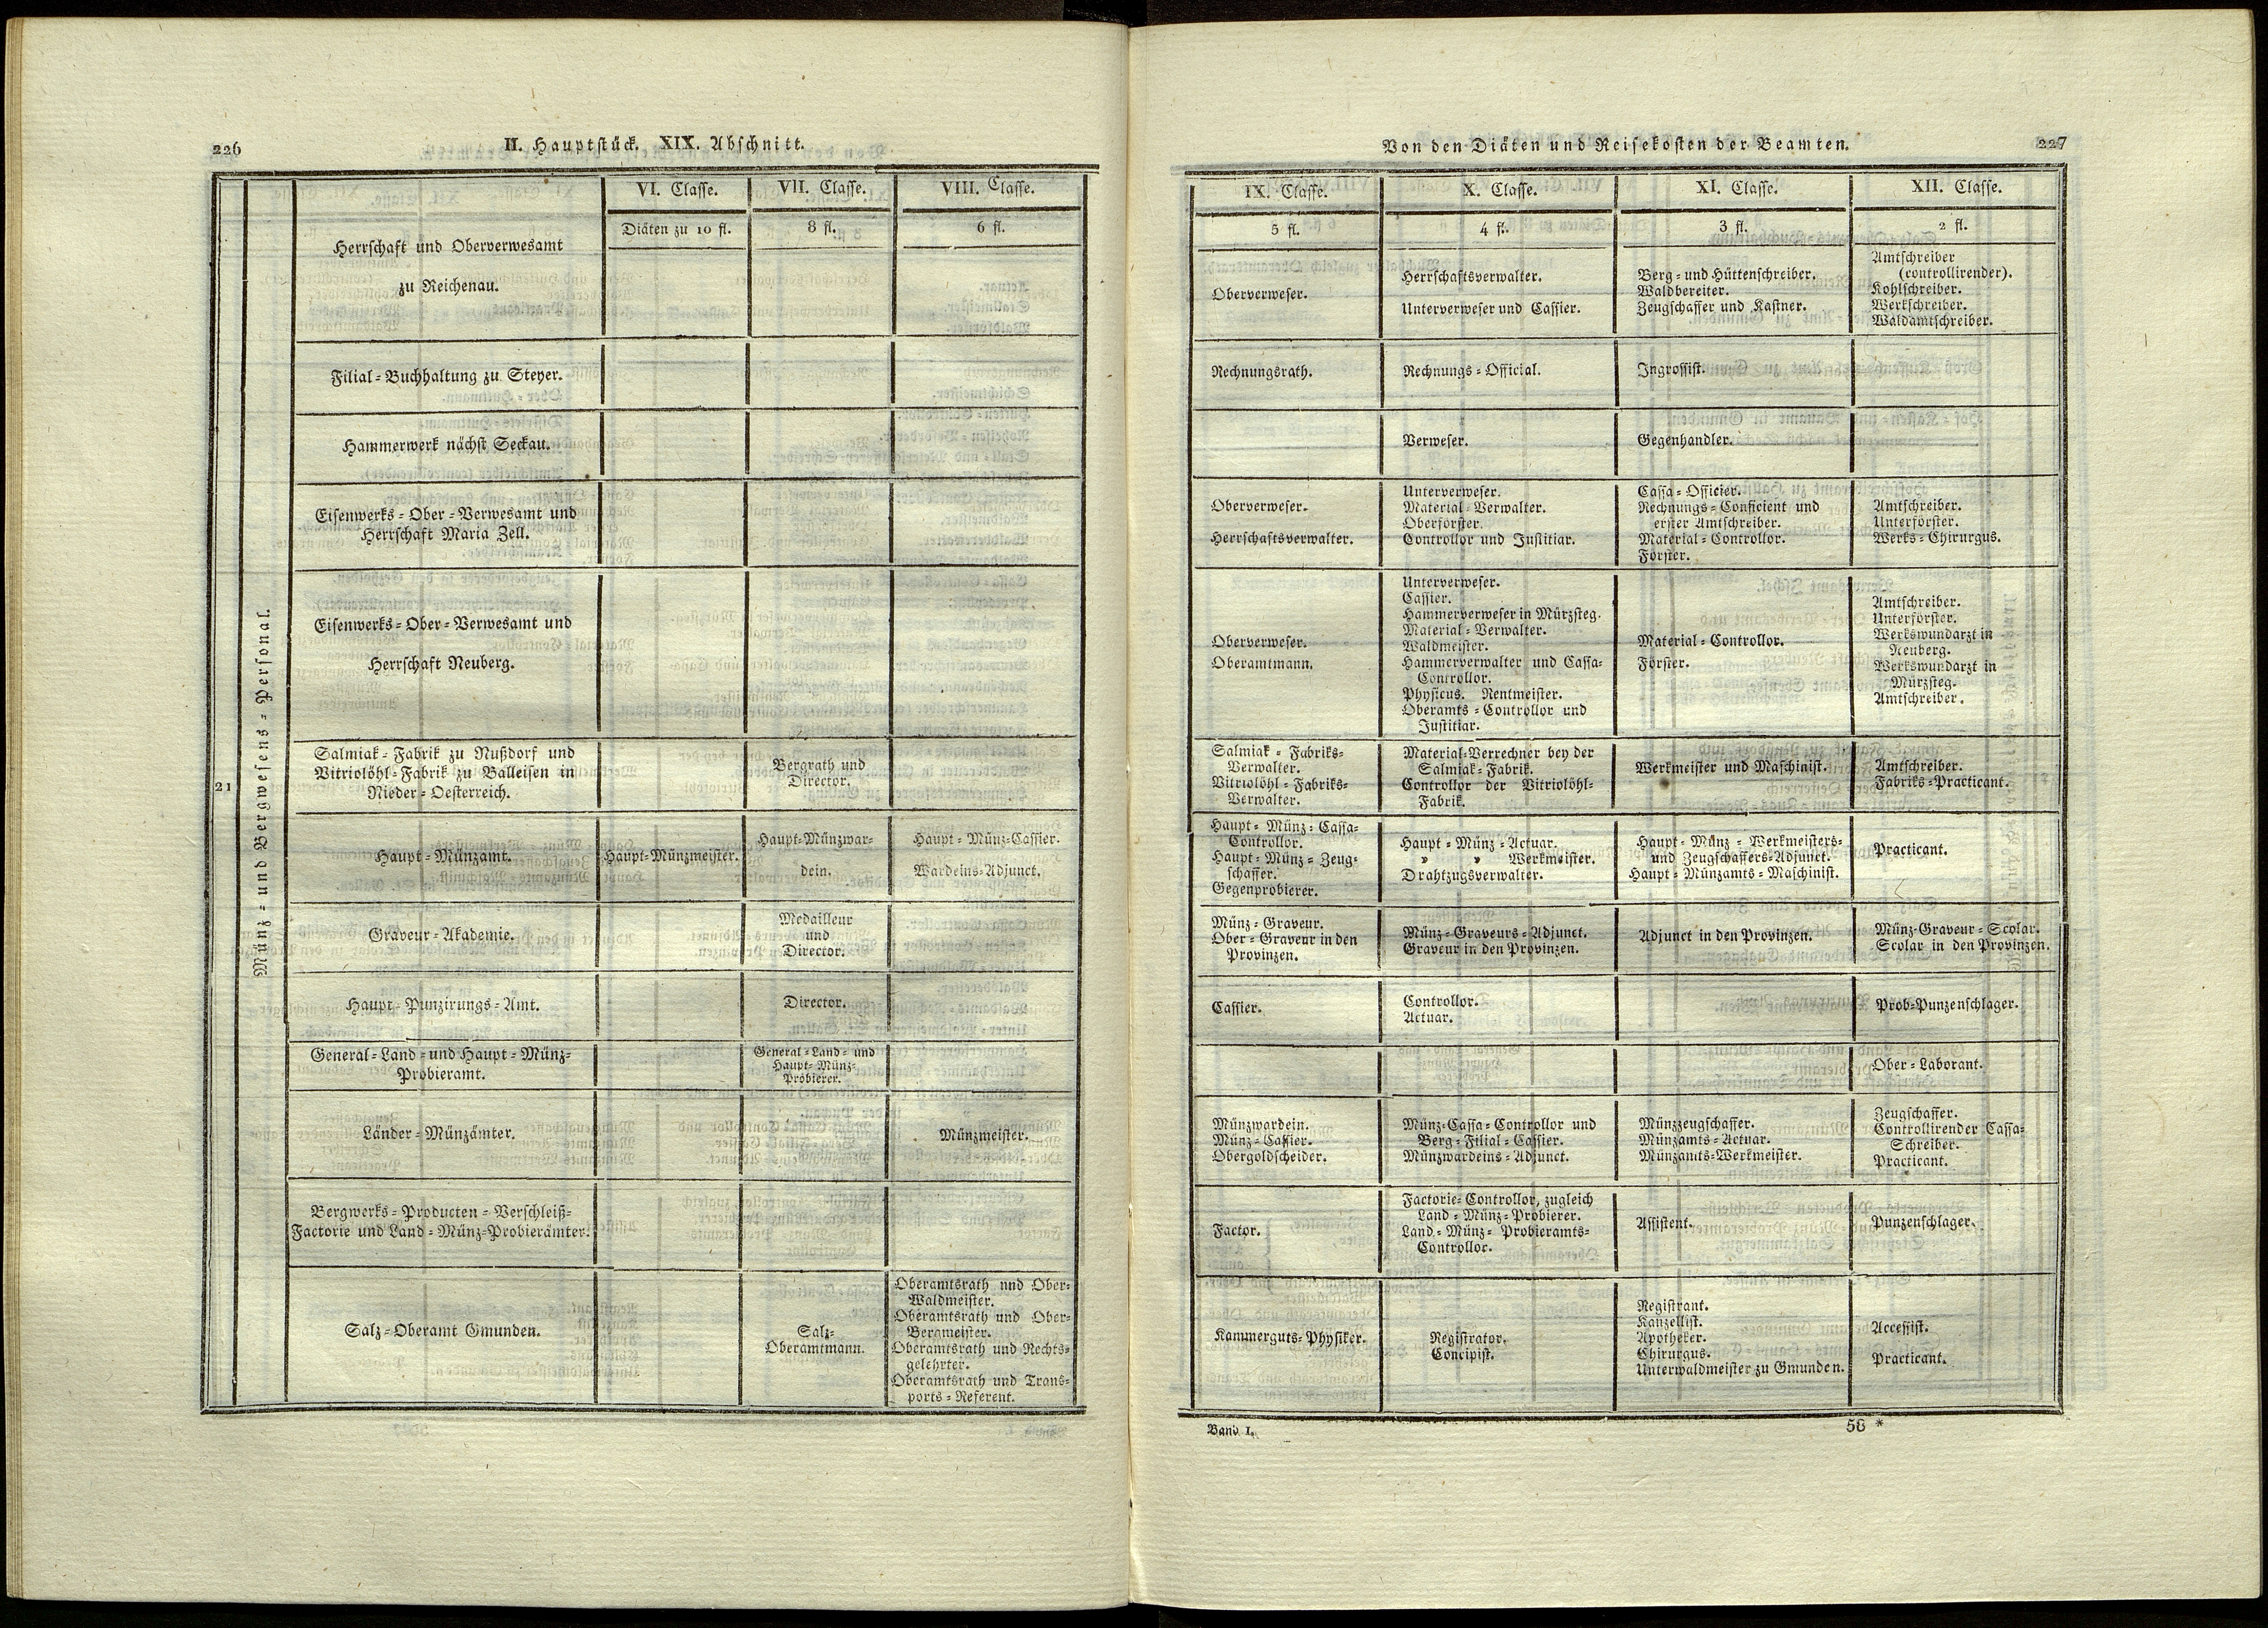 226
II. Hauptstück. XIX. Abschnitt.
VI. Classe.
VII. Classe.
VIII. Classe.
Diäten zu 10 fl.
8 fl.
6 fl.
21
Münz- und Bergwesens-Personal.
Herrschaft und Oberverwesamt
zu Reichenau.
Filial-Buchhaltung zu Steyer.
Hammerwerk nächst Seckau.
Eisenwerks-Ober-Verwesamt und
Herrschaft Maria Zell.
Eisenwerks-Ober-Verwesamt und
Herrschaft Neuberg.
Salmiak-Fabrik zu Nußdorf und
Vitriolöhl-Fabrik zu Balleisen in
Nieder-Oesterreich.
Bergrath und
Director.
Haupt-Münzamt.
Haupt-Münzmeister.
Haupt-Münzwar-
dein.
Haupt-Münz-Cassier.
Wardeins-Adjunct.
Graveur-Akademie.
Medailleur
und
Director.
Haupt-Punzirungs-Amt.
Director.
General-Land- und Haupt-Münz-
Probieramt.
General-Land- und
Haupt-Münz-
Probierer.
Länder-Münzämter.
Münzmeister.
Bergwerks-Producten-Verschleiß-
Factorie und Land-Münz-Probierämter.
Salz-Oberamt Gmunden.
Salz-
Oberamtmann.
Oberamtsrath nnd Ober-
Waldmeister.
Oberamtsrath und Ober-
Bergmeister.
Oberamtsrath und Rechts-
gelehrter.
Oberamtsrath und Trans-
ports-Referent.
Von den Diäten und Reisekosten der Beamten.
227
IX. Classe.
X. Classe.
XI. Classe.
XII. Classe.
5 fl.
4 fl.
3 fl.
2 fl.
Oberverweser.
Herrschaftsverwalter.
Unterverweser und Cassier.
Berg- und Hüttenschreiber.
Waldbereiter.
Zeugschaffer und Kastner.
Amtschreiber
(controllirender).
Kohlschreiber.
Werkschreiber.
Waldamtschreiber.
Rechnungsrath.
Rechnungs-Official.
Ingrossist.
Verweser.
Gegenhandler.
Oberverweser.
Herrschaftsverwalter.
Unterverweser.
Material-Verwalter.
Oberförster.
Controllor und Justitiar.
Cassa-Officier.
Rechnungs-Conficient und
erster Amtschreiber.
Material-Controllor.
Förster.
Amtschreiber.
Unterförster.
Werks-Chirurgus.
Oberverweser.
Oberamtmann.
Unterverweser.
Cassier.
Hammerverweser in Mürzsteg.
Material-Verwalter.
Waldmeister.
Hammerverwalter und Cassa-
Controllor.
Physicus. Rentmeister.
Oberamts-Controllor und
Justitiar.
Material-Controllor.
Förster.
Amtschreiber.
Unterförster.
Werkswundarzt in
Neuberg.
Werkswundarzt in
Mürzsteg.
Amtschreiber.
Salmiak-Fabriks-
Verwalter.
Vitriolöhl-Fabriks-
Verwalter.
Material-Verrechner bey der
Salmiak-Fabrik.
Controllor der Vitriolöhl-
Fabrik.
Werkmeister und Maschinist.
Amtschreiber.
Fabriks-Practicant.
Haupt-Münz-Cassa-
Controllor.
Haupt-Münz-Zeug-
schaffer.
Gegenprobierer.
Haupt-Münz-Actuar.
» » Werkmeister.
Drahtzugsverwalter.
Haupt-Münz-Werkmeisters-
und Zeugschaffers-Adjunct.
Haupt-Münzamts-Maschinist.
Practicant.
Münz-Graveur.
Ober-Graveur in den
Provinzen.
Münz-Graveurs-Adjunct.
Graveur in den Provinzen.
Adjunct in den Provinzen.
Münz-Graveur-Scolar.
Scolar in den Provinzen.
Cassier.
Controllor.
Actuar.
Prob-Punzenschlager.
Ober-Laborant.
Münzwardein.
Münz-Cassier.
Obergoldscheider.
Münz-Cassa-Controllor und
Berg-Filial-Cassier.
Münzwardeins-Adjunct.
Münzzeugschaffer.
Münzamts-Actuar.
Münzamts-Werkmeister.
Zeugschaffer.
Controllirender Cassa-
Schreiber.
Practicant.
Factor.
Factorie-Controllor, zugleich
Land-Münz-Probierer.
Land-Münz-Probieramts-
Controllor.
Assistent.
Punzenschlager.
Kammerguts-Physiker.
Registrator.
Concipist.
Registrant.
Kanzellist.
Apotheker.
Chirurgus.
Unterwaldmeister zu Gmunden.
Accessist.
Practicant.
Band I.
58 *